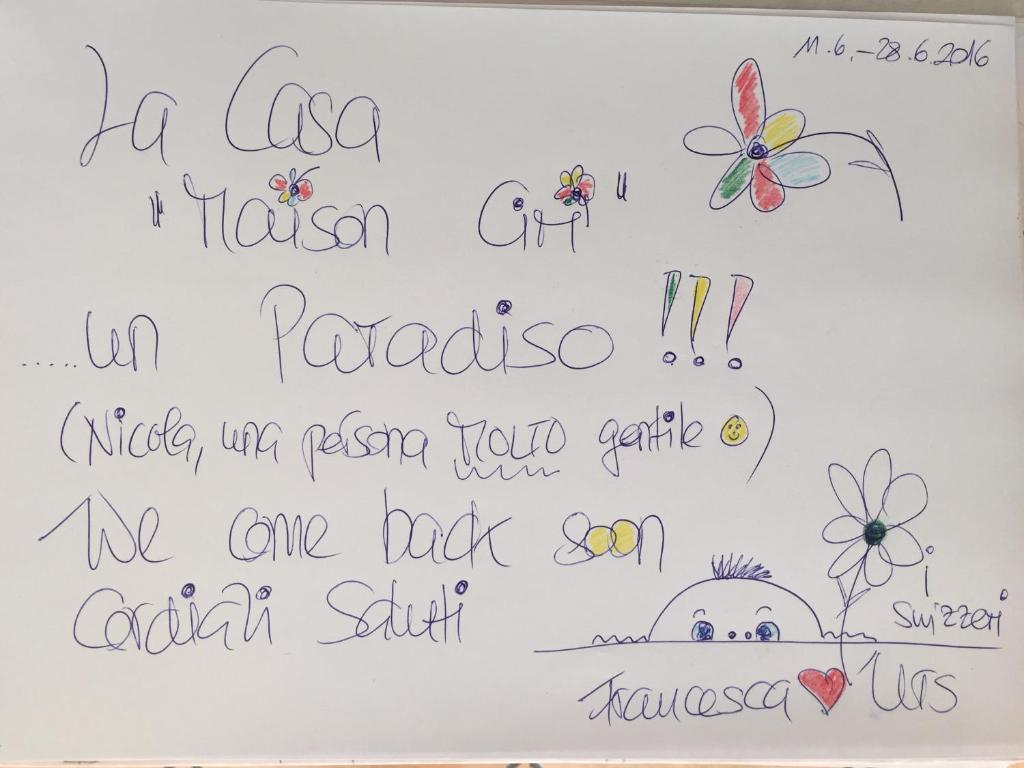 11.6.-28.6.2016
La Casa
"Maison Cirì"
.....un Paradiso !!!
(Nicola, una persona MOLTO gentile ☺)
We come back soon
Cordiali Saluti
i
Svizzeri
Francesca ♥ Urs